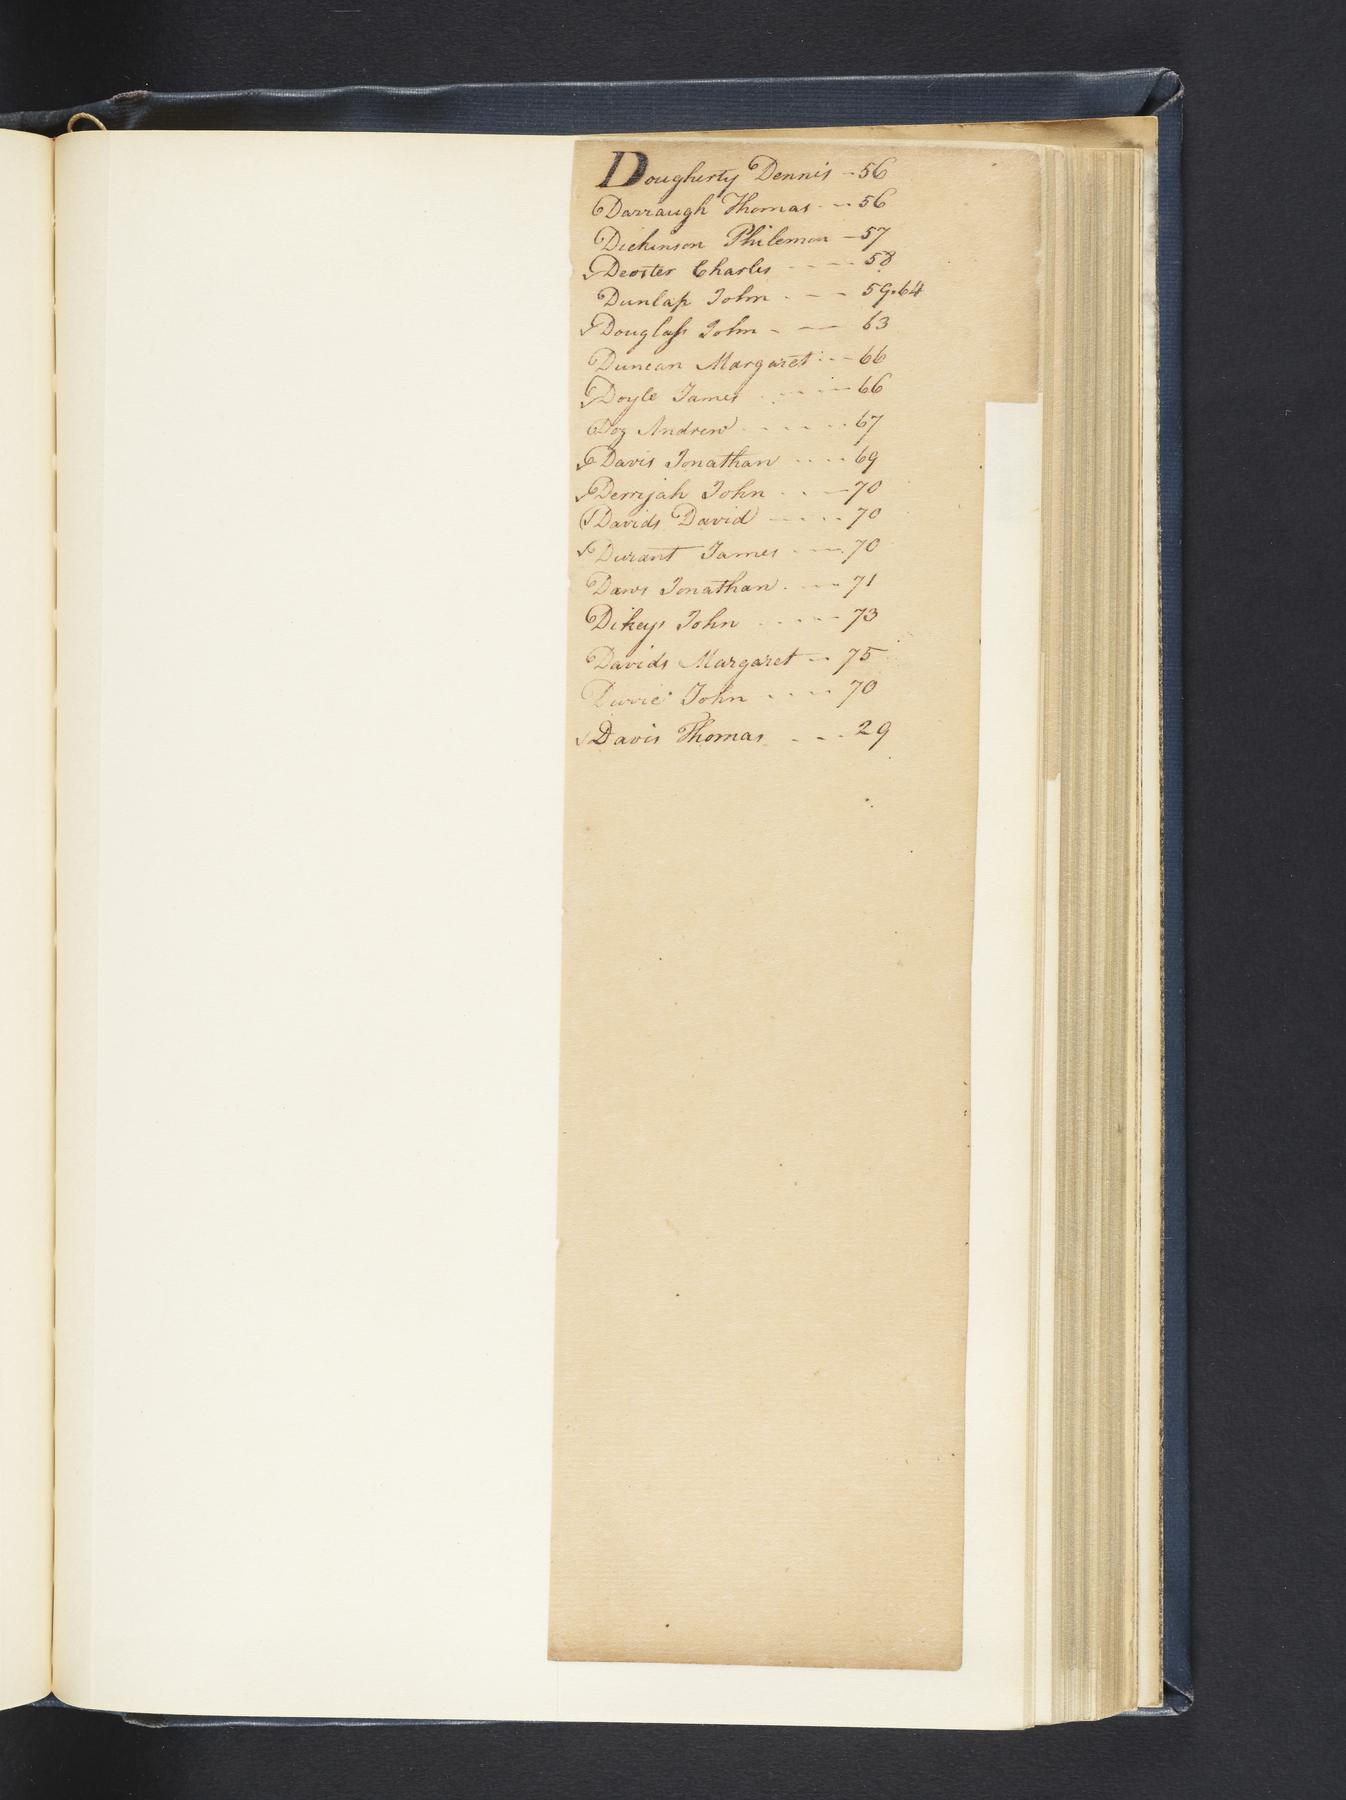 Dougherty Dennis - 56
Darraugh Thomas - - 56
Dickinson Philemon - 57
Deoster Charles - - - - 58
Dunlap John - - - 59.64
Douglass John - - - 63
Duncan Margaret - - 66
Doyle James - - - - 66
Doz Andrew - - - - - 67
Davis Jonathan - - - - 69
John - - - 70
Davids David - - - - 70
Durant James - - - 70
Daws Jonathan - - - 71
Dikeys John - - - - - 73
Davids Margaret - - 75
John - - - - 70
Davis Thomas - - - 29